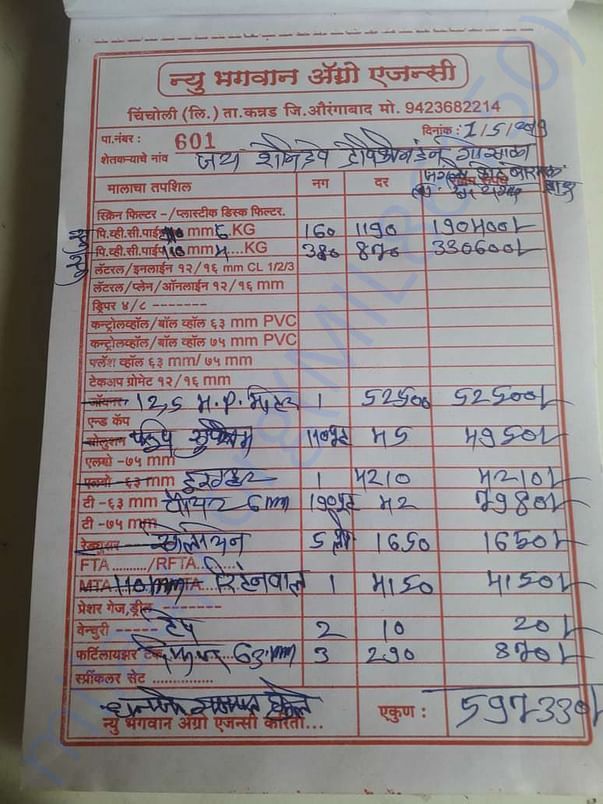 न्यु भगवान अ‍ॅग्रो एजन्सी
चिंचोली (लि.) ता.कन्नड जि.औरंगाबाद मो. 9423682214
पा.नंबर : 601 दिनांक : 1/5/2019
शेतकऱ्याचे नांव जय
मालाचा तपशिल नग दर
स्क्रिन फिल्टर -/प्लास्टीक डिस्क फिल्टर.
पि.व्ही.सी.पाईप 110 mm 6.KG 160 1190 190400/-
पि.व्ही.सी.पाईप 110 mm 4....KG 380 870 330600/-
लॅटरल/इनलाईन १२/१६ mm CL 1/2/3
लॅटरल/प्लेन/ऑनलाईन १२/१६ mm
ड्रिपर ४/८ -------
कन्ट्रोलव्हॉल/बॉल व्हॉल ६३ mm PVC
कन्ट्रोलव्हॉल/बॉल व्हॉल ७५ mm PVC
फ्लॅश व्हॉल ६३ mm/ ७५ mm
टेकअप ग्रोमेट १२/१६ mm
जॉयनर 12,5 H.P. मोटर 1 52500 52500/-
एन्ड कॅप
सोलुशन 110फुट 45 4950/-
एल्बो -७५ mm
एल्बो -६३ mm 1 4210 4210/-
टी -६३ mm वायर 6 mm 190फुट 42 7980/-
टी -७५ mm
5 ली 1650 1650/-
FTA........../RFTA.......
MTA 110 mm 1 4150 4150/-
प्रेशर गेज,ड्रील -------
वेन्चुरी ----- टेप 2 10 20/-
फर्टिलायझर टॅंक 63 mm 3 290 870/-
स्प्रींकलर सेट ...............
न्यु भगवान अ‍ॅग्रो एजन्सी करिता... एकुण : 597330/-